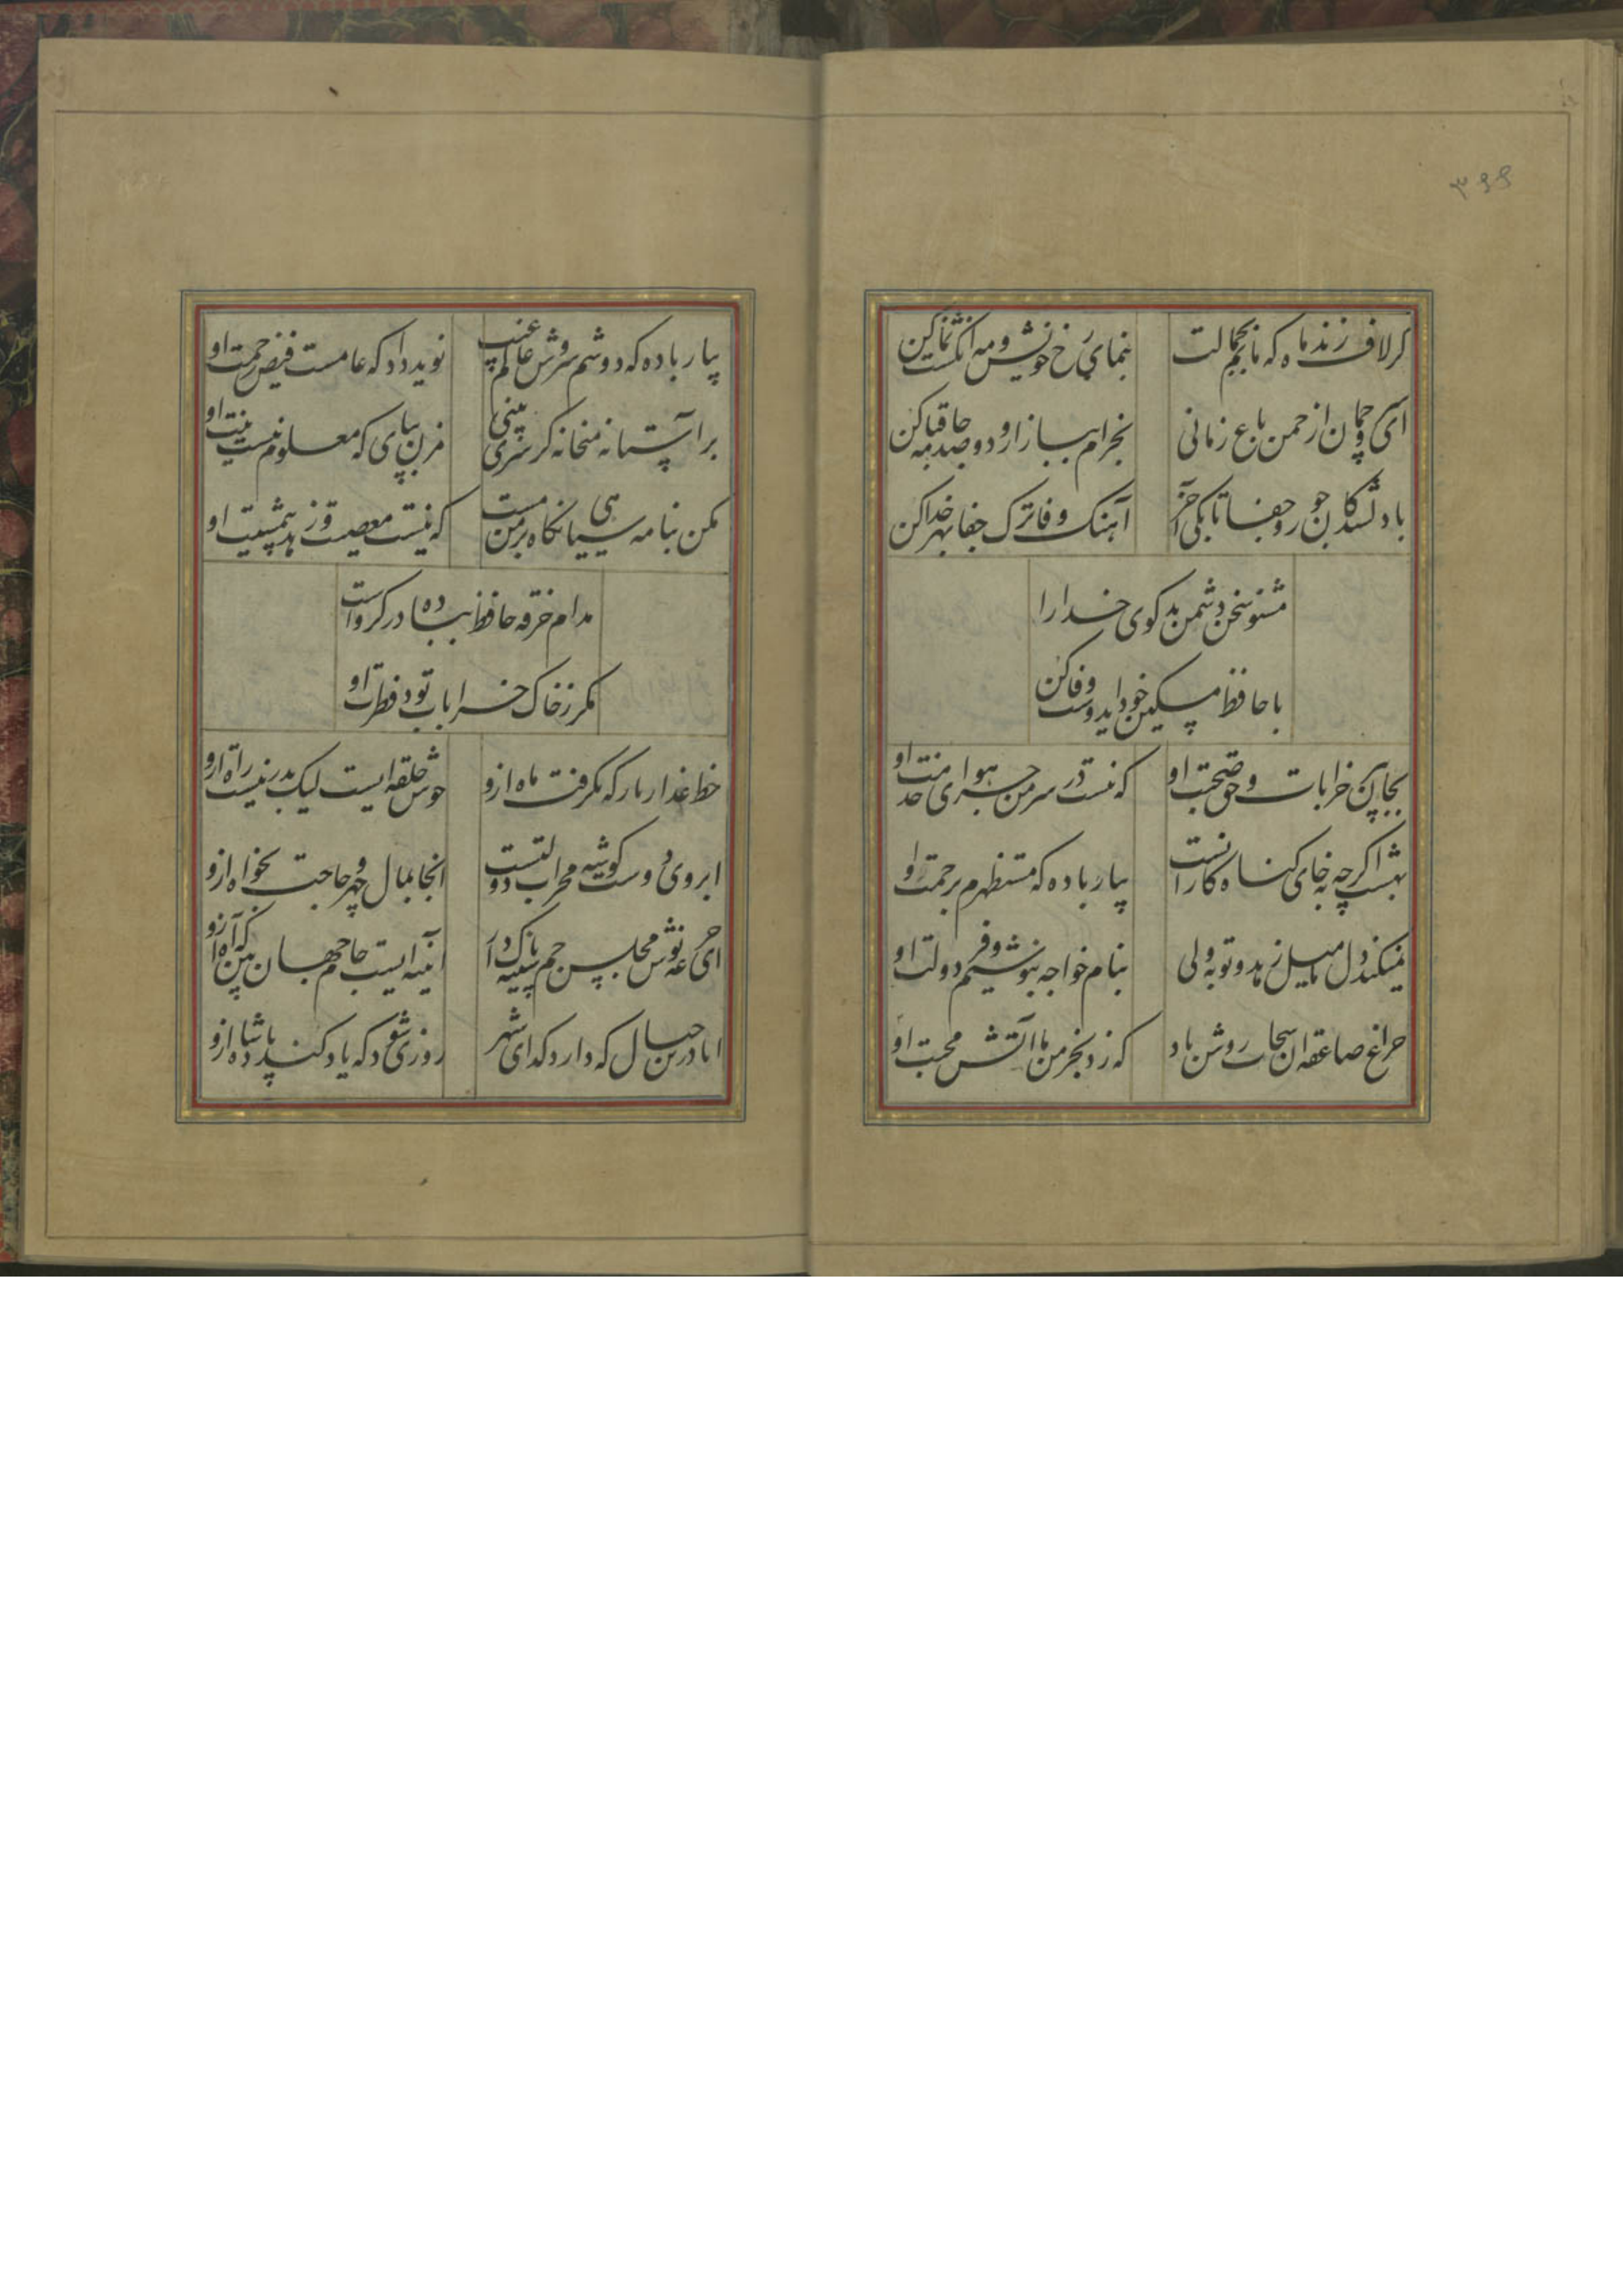 ۳۶۶
کر لاف زند ماه که مانم بجمالت
بنمای رخ خویش و مه انکشت نما کن
ای سرو چمان از چمن باغ زمانی
بخرام ببازار و دو صد جامه قبا کن
با دلشدکان جور و جفا تا بکی آخر
آهنک وفا ترک جفا بهر خدا کن
مشنو سخن دشمن بدکوی خدا را
با حافظ مسکین خود ایدوست وفا کن
بجان پیر خرابات و حق صحبت او
که نیست در سر من جز هوای خدمت او
بهشت اکر چه نه جای کناه کارانست
بیار باده که مستظهرم برحمت او
نمیکند دل ما میل زهد و توبه ولی
بنام خواجه بنوشیم و فر دولت او
چراغ صاعقه ان سحاب روشن باد
که زد بخرمن ما اتش محبت او
بیار باده که دوشم سروش عالم غیب
نوید داد که عامست فیض رحمت او
بر آستانه میخانه کر سری بینی
مزن بپای که معلوم نیست نیت او
مکن بنامه سیاهی نکاه بر من مست
که نیست معصیت و زهد بی مشیت او
مدام خرقه حافظ بباده در کرو است
مکر ز خاک خرابات بود فطرت او
خط عذار یار که بکرفت ماه ازو
خوش حلقه ایست لیک بدر نیست راه ازو
ابروی دوست کوشه محراب دولتست
انجا بمال چهر و حاجت بخواه ازو
ای جرعه نوش مجلس جم سینه پاک دار
آینه ایست جام جهان بین که آه ازو
ایا درین خیال که دارد کدای شهر
روزی شود که یاد کند پادشاه ازو